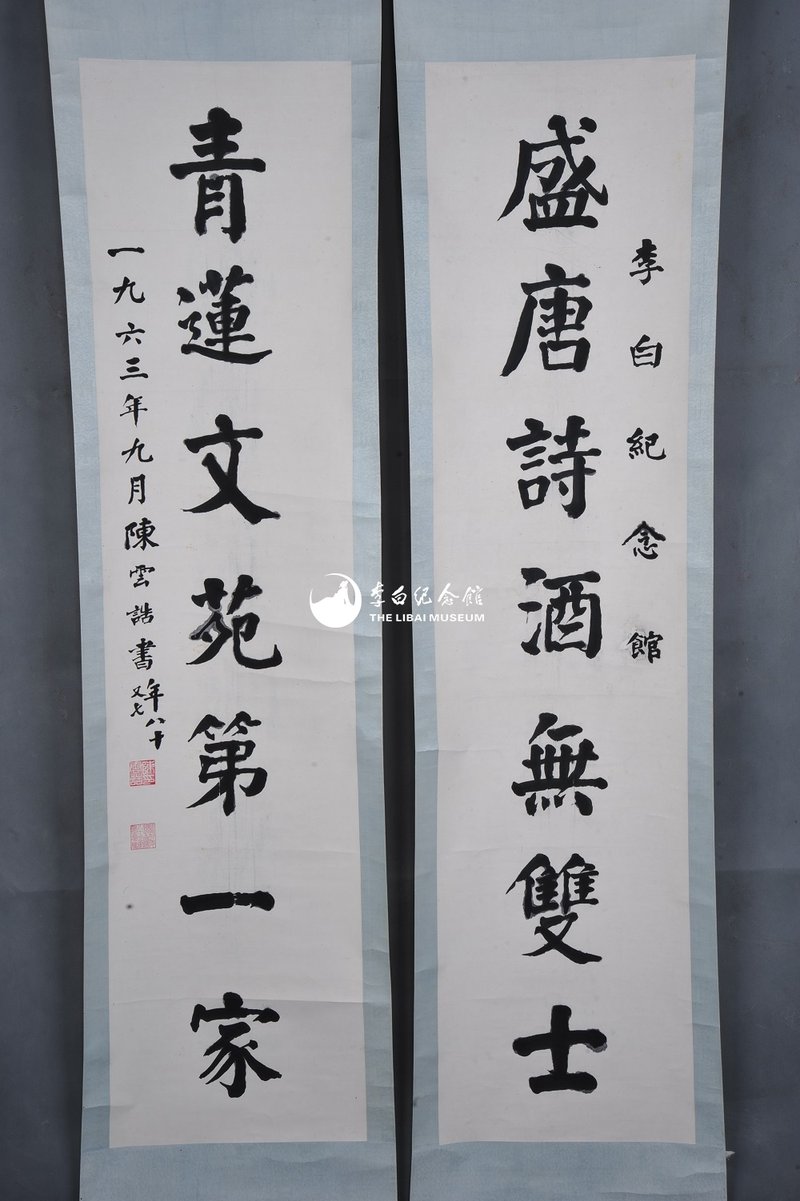 李白紀念館
盛唐詩酒無雙士
青蓮文苑第一家
一九六三年九月陳雲誥書
年八十
又七
李白纪念館
THE LIBAI MUSEUM